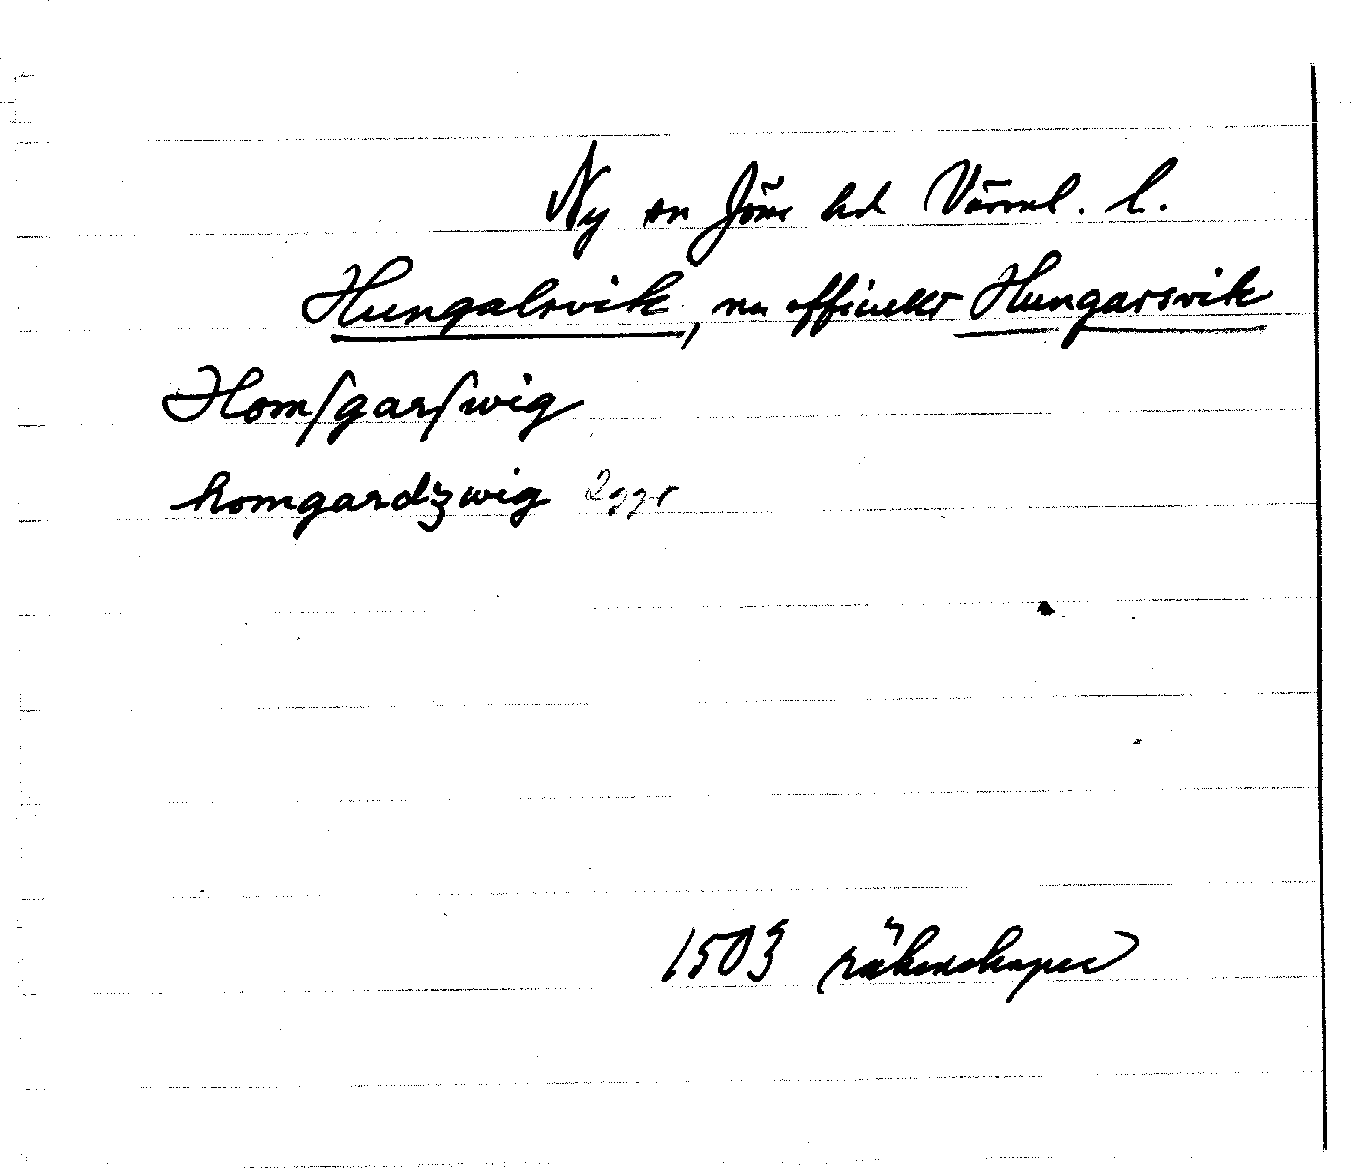 Ny sn Jösse hd Värml. l.
Hungalsvik, nu officiellt Hungarsvik
Homſgarſwig
homgardzwig
1503 räkenskaper